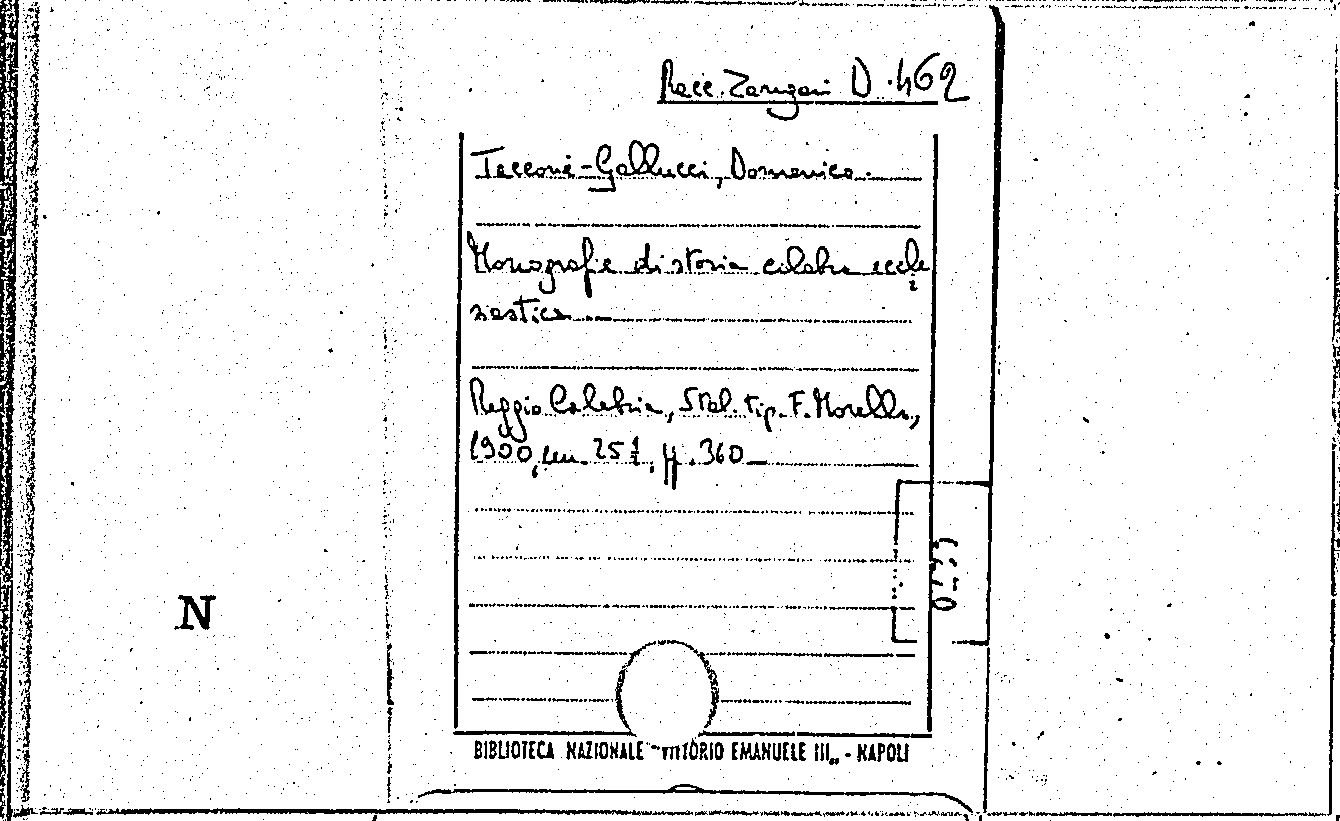 Racc. Zangari D. 462
Taccone-Gallucci, Domenico.
Monografie di storia calabra eccle
siastica
Reggio Calabria, Stab. tip. F. Morello,
1900, cm. 25 ½, pp. 360
N
BIBLIOTECA NAZIONALE "VITTORIO EMANUELE III„ - NAPOLI